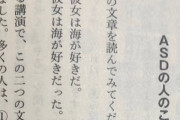 ASDの人のこ
の文章を読んでみてくだ
彼女は海が好きだ。
彼女は海が好きだった。
る講演で、この二つの文
ました。多くの人は、①